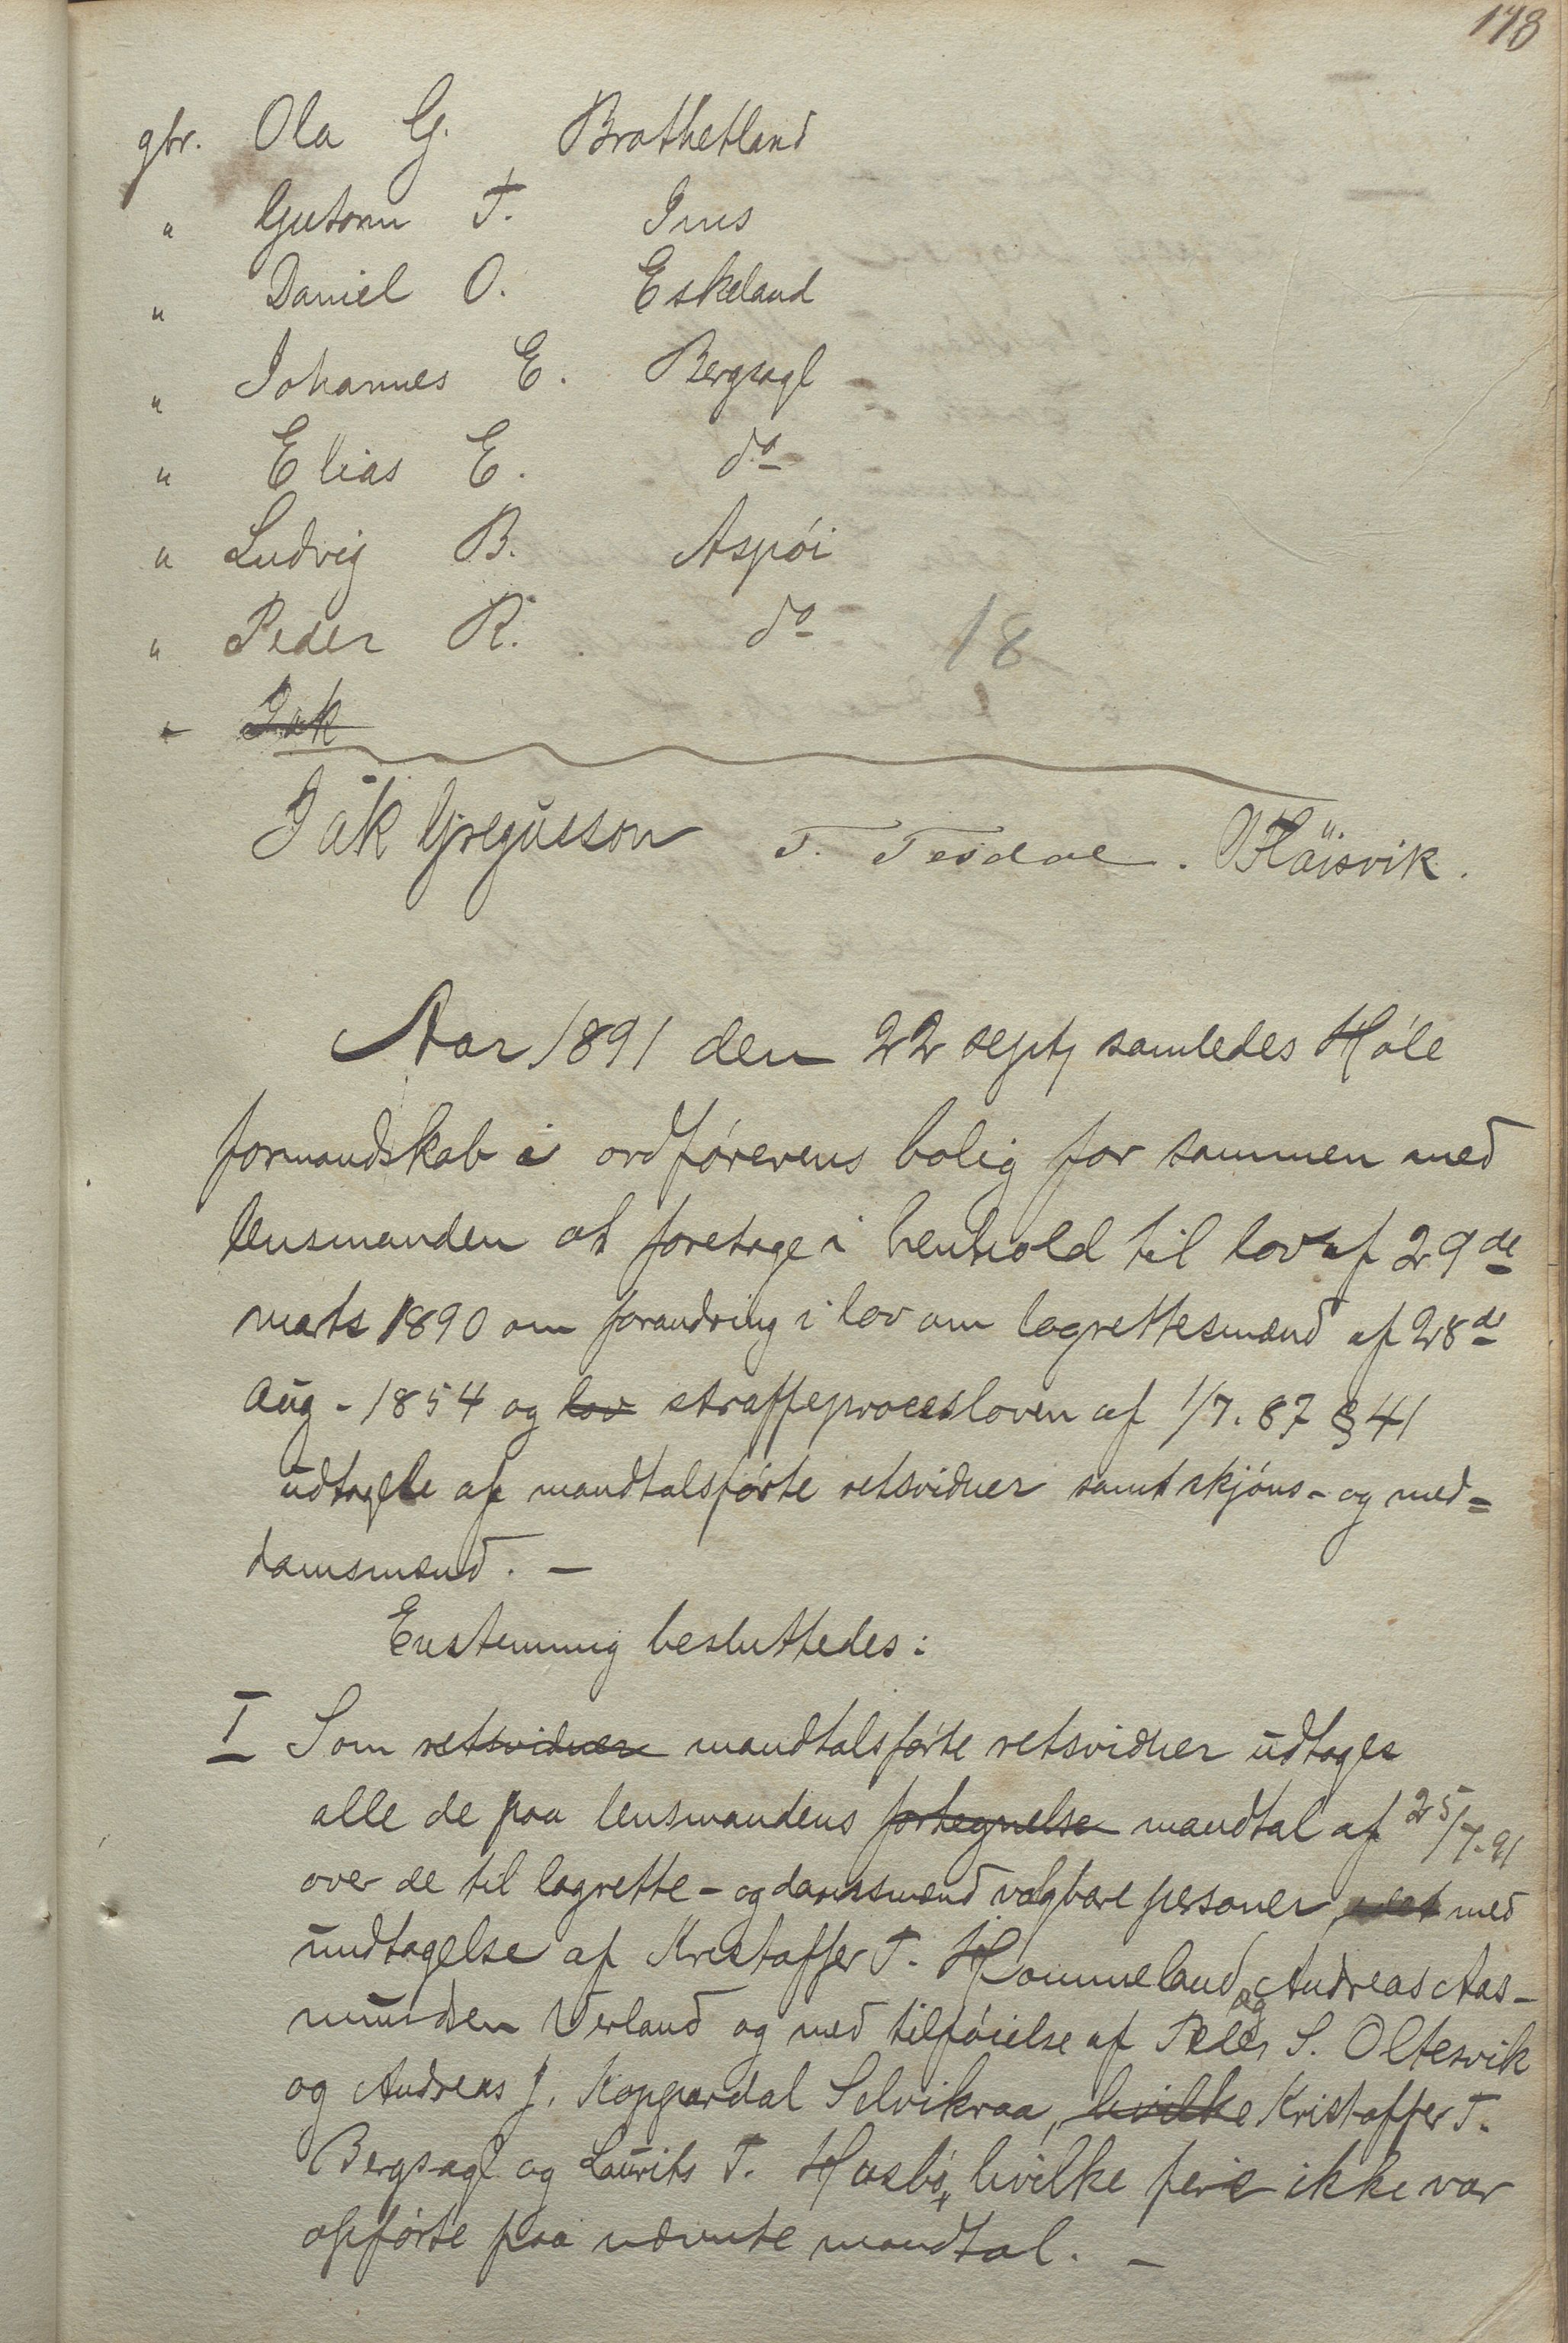 178
gbr. Ola G. Brathetland
" Gutorm T. Ims
" Daniel O. Eskeland
" Johannes E. Bergsagl
" Elias E. do
" Ludvig B. Aspói
" Peder R. do 18
" Jak
Jak Gregusson T. Tesdal. Håisvik.
Aar 1891 den 22 septj samledes Hóle
formandskab i ordfórerens bolig for sammen med
lensmanden at foretage i henhold til lov af 29de
marts 1890 om forandring i lov om lagrettesmænd af 28de
Aug - 1854 og lov straffeprocesloven af 1/7. 87 § 41
udtagelse af mandtalsfórte retsvidner samt skjóns- og med=
damsmænd. -
Enstemmig besluttedes:
I Som retsvidner mandtalsfórte retsvidner udtages
alle de paa lensmandens fortegnelse mandtal af 25/7-91
over de til lagrette- og domsmænd valgbare personer, med
undtagelse af Kristoffer T. Hommeland og Andreas Aas-
mundsen Verland og med tilfóielse af Peder S. Oltesvik
og Andreas J. Koppardal Selvikraa, hvilke Kristoffer T.
Bergsagl og Laurits T. Husbó, hvilke fire ikke var
opfórte paa nævnte mandtal. -